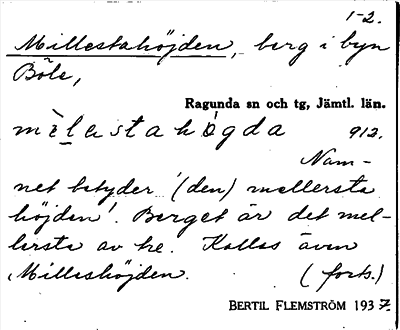 1-2.
Millestahöjden, berg i byn
Böle,
Ragunda sn och tg, Jämtl. län.
mèlestahögda 912.
Nam-
net betyder '(den) mellersta
höjden'. Berget är det mel-
lersta av tre. Kallas även
Milleshöjden. (forts.)
BERTIL FLEMSTRÖM 1937.